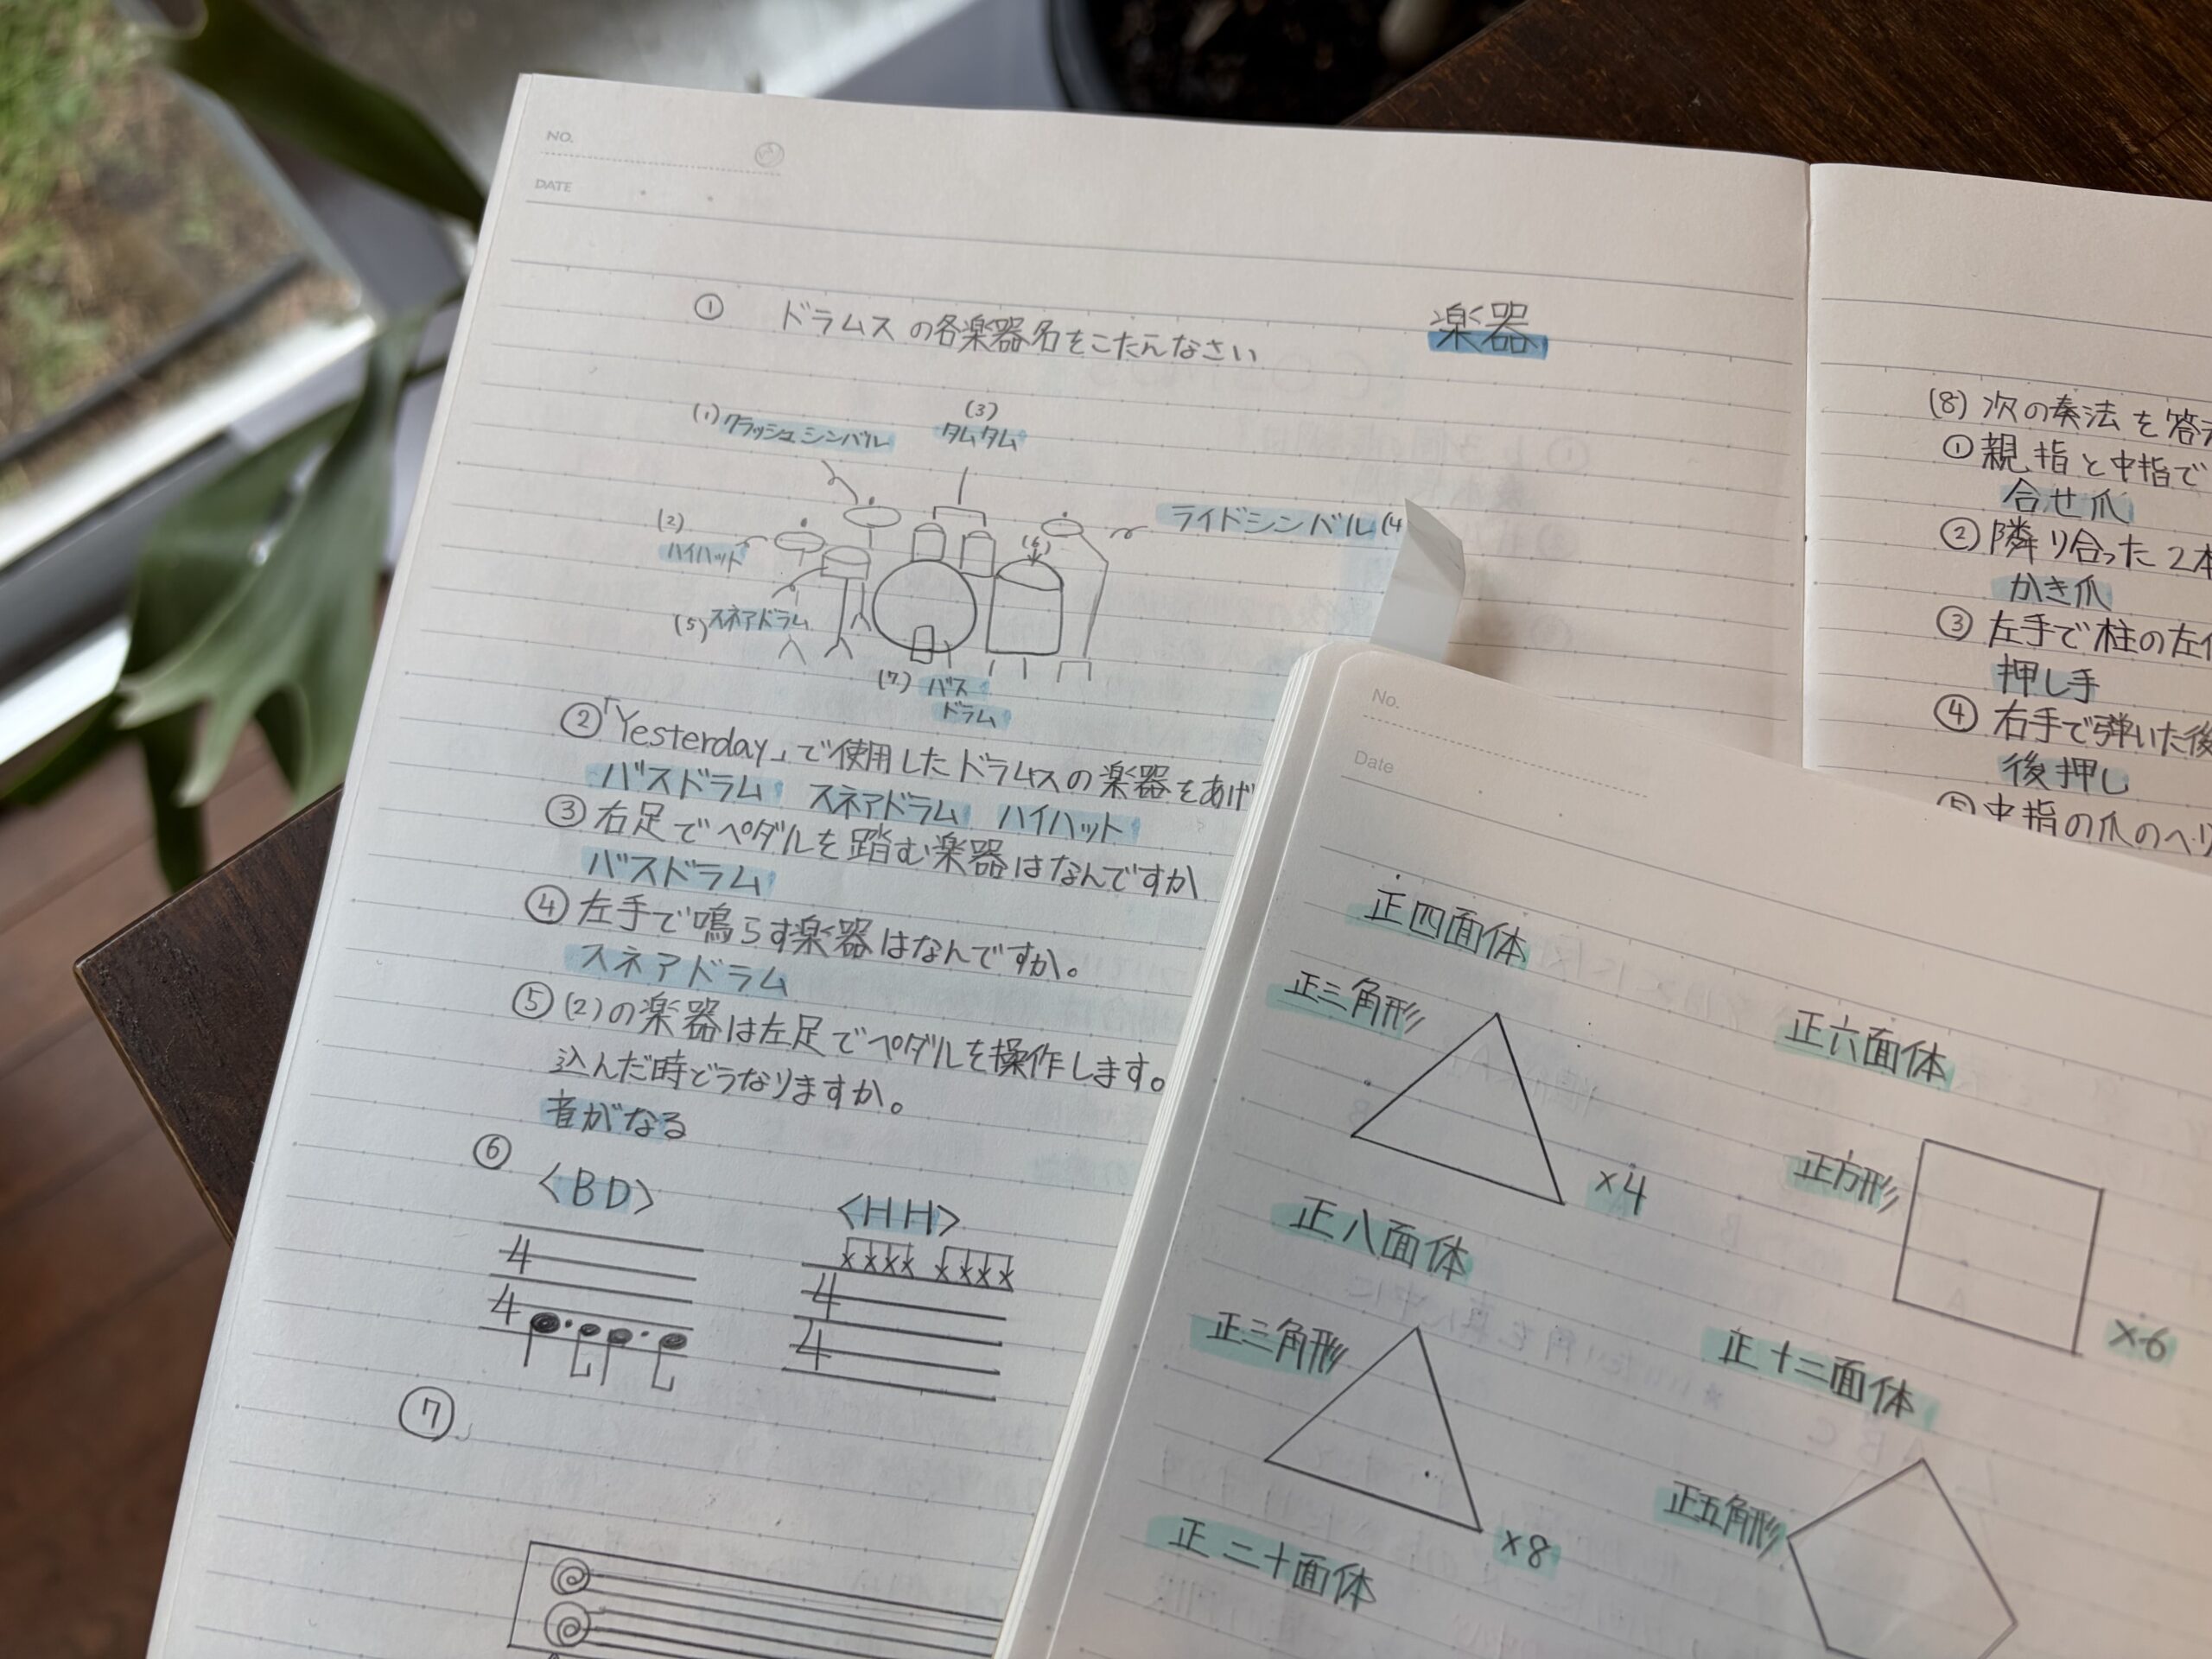 NO.
DATE
① ドラムスの各楽器名をこたんなさい
楽器
(1) クラッシュシンバル
(3)
タムタム
(2)
ハイハット
ライドシンバル (4
(6)
(5) スネアドラム
(7) バス
ドラム
② 「Yesterday」で使用したドラムスの楽器をあげ
バスドラム スネアドラム ハイハット
③ 右足でペダルを踏む楽器はなんですか
バスドラム
④ 左手で鳴らす楽器はなんですか。
スネアドラム
⑤ (2)の楽器は左足でペダルを操作します。
込んだ時どうなりますか。
音がなる
⑥
<BD>
<HH>
4
4
4
4
⑦
(8) 次の奏法を答
① 親指と中指で
合せ爪
② 隣り合った2本
かき爪
③ 左手で柱の左
押し手
④ 右手で弾いた後
後押し
⑤ 中指の爪のへり
No.
Date
正四面体
正三角形
×4
正六面体
正方形
×6
正八面体
正三角形
×8
正十二面体
正五角形
正二十面体